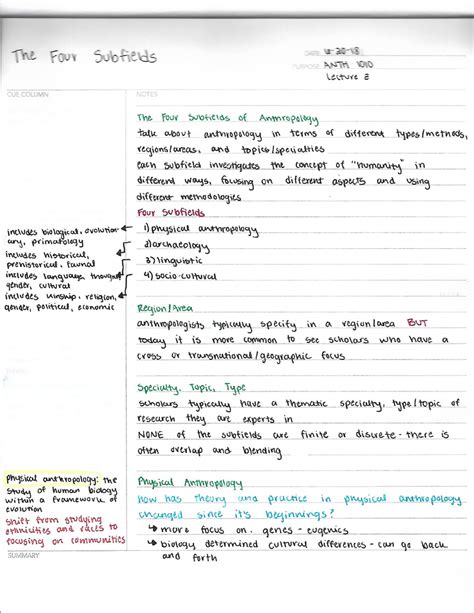 The Four Subfields
DATE 6-20-18
PURPOSE ANTH 1010
Lecture 2
CUE COLUMN
NOTES
The Four Subfields of Anthropology
talk about anthropology in terms of different types/methods,
regions/areas, and topics/specialties
each subfield investigates the concept of "humanity" in
different ways, focusing on different aspects and using
different methodologies
Four Subfields
includes biological, evolution-
ary, primatology
includes historical,
prehistorical, faunal
includes language, thought
gender, cultural
includes kinship, religion,
gender, political, economic
1) physical anthropology
2) archaeology
3) linguistic
4) socio-cultural
Region/Area
anthropologists typically specify in a region/area BUT
today it is more common to see scholars who have a
cross or transnational/geographic focus
Specialty, Topic, Type
scholars typically have a thematic specialty, type/topic of
research they are experts in
NONE of the subfields are finite or discrete - there is
often overlap and blending
physical anthropology: the
study of human biology
within a framework of
evolution
shift from studying
ethnicities and races to
focusing on communities
Physical Anthropology
how has theory and practice in physical anthropology
changed since it's beginnings?
↳ more focus on genes - eugenics
↳ biology determined cultural differences - can go back
and forth
SUMMARY